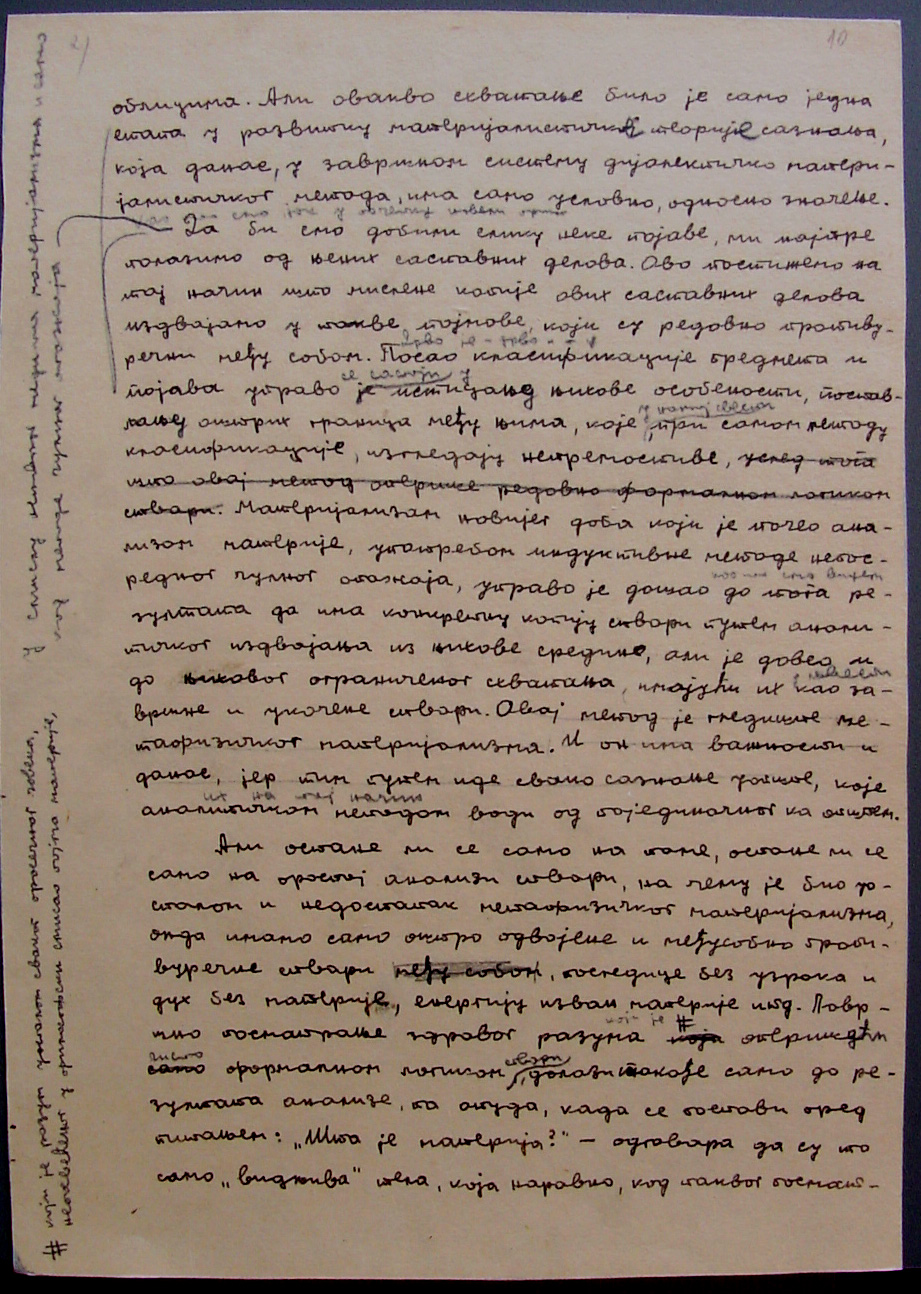 2)
10
облицима. Али овакво схватање било је само једна
етапа у развитку материјалистичке теорије сазнања,
која данас, у завршном систему дијалектичко матери-
јалистичког метода, има само условно, односно значење.
Да би смо добили слику неке појаве, ми најпре
полазимо од њених саставних делова. Ово постижемо на
тај начин што мислене копије ових саставних делова
издвајамо у такве појмове, који су редовно противу-
речни међу собом. Посао класификације предмета и
се састоји у
појава управо је истицању њихове особености, постав-
у нашој свести
љању оштрих граница међу њима, које, при самом методу
класификације, изгледају непремостиве, услед тога
што овај метод оперише редовно формалном логиком
ствари. Материјализам новијег доба који је почео ана-
лизом материје, употребом индуктивне методе непос-
као што смо видели
редног чулног опажаја, управо је дошао до тога ре-
зултата да има конкретну копију ствари путем анали-
тичког издвајања из њихове средине, али је довео и
до њиховог ограниченог схватања, имајући их као за-
вршне и укочене ствари. Овај метод је гледиште ме-
тафизичког материјализма. И он има важности и
данас, јер тим путем иде свако сазнање уопште, које
их на тај начин
аналитичком методом води од појединачног ка општем.
Али остане ли се само на томе, остане ли се
само на простој анализи ствари, на чему је био у о-
сталом и недостатак метафизичког материјализма,
онда имамо само оштро одвојене и међусобно проти-
вуречне ствари међу собом, последице без узрока и
дух без материје, енергију изван материје итд. Повр-
који је #
шно посматрање здравог разума која оперишући
чисто ствари
само формалном логиком, долази такође само до ре-
зултата анализе, па отуда, када се постави пред
питањем: „Шта је материја?“ — одговара да су то
само „видљива“ тела, која наравно, код таквог посмат-
# који је разум уосталом сваког просечног човека,
непосвећеног у филозофски смисао појма материје,